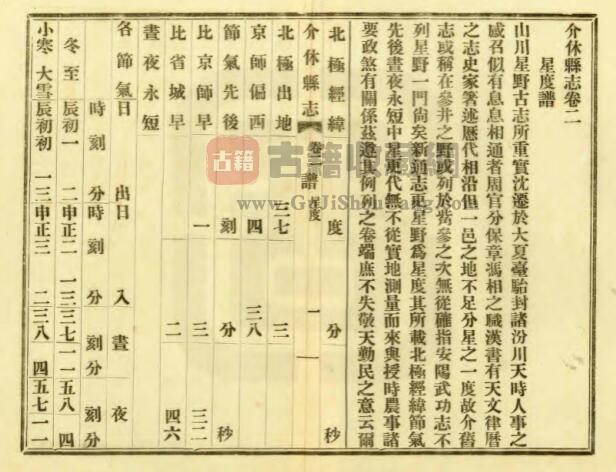 介休縣志卷二
星度譜
山川星野古志所重實沈遷於大夏臺駘封諸汾川天時人事之
感召似有息息相通者周官分保章馮相之職漢書有天文律曆
之志史家著述歷代相沿但一邑之地不足分星之一度故介舊
志或稱在參井之野或列於觜參之次無從確指安陽武功志不
列星野一門尙矣新通志更星野爲星度其所載北極經緯節氣
先後晝夜永短中星更代無不從實地測量而來與授時農事諸
要政煞有關係茲遵其例列之卷端庶不失敬天勤民之意云爾
北極經緯 度 分 秒
介休縣志 卷 譜 星度 一
北極出地 三七 三
京師偏西 四 三八
節氣先後 刻 分 秒
比京師早 一 三 三二
比省城早 二 四六
晝夜永短
各節氣日 出日 入 晝 夜
時 刻 分時 刻 分 刻分 刻分
冬至 辰初一 二申正二 一三三七一一五八 四
小寒 大雪辰初初 一三申正三 二三八 四五七一一
古籍收藏網
www.GuJiShouCang.com